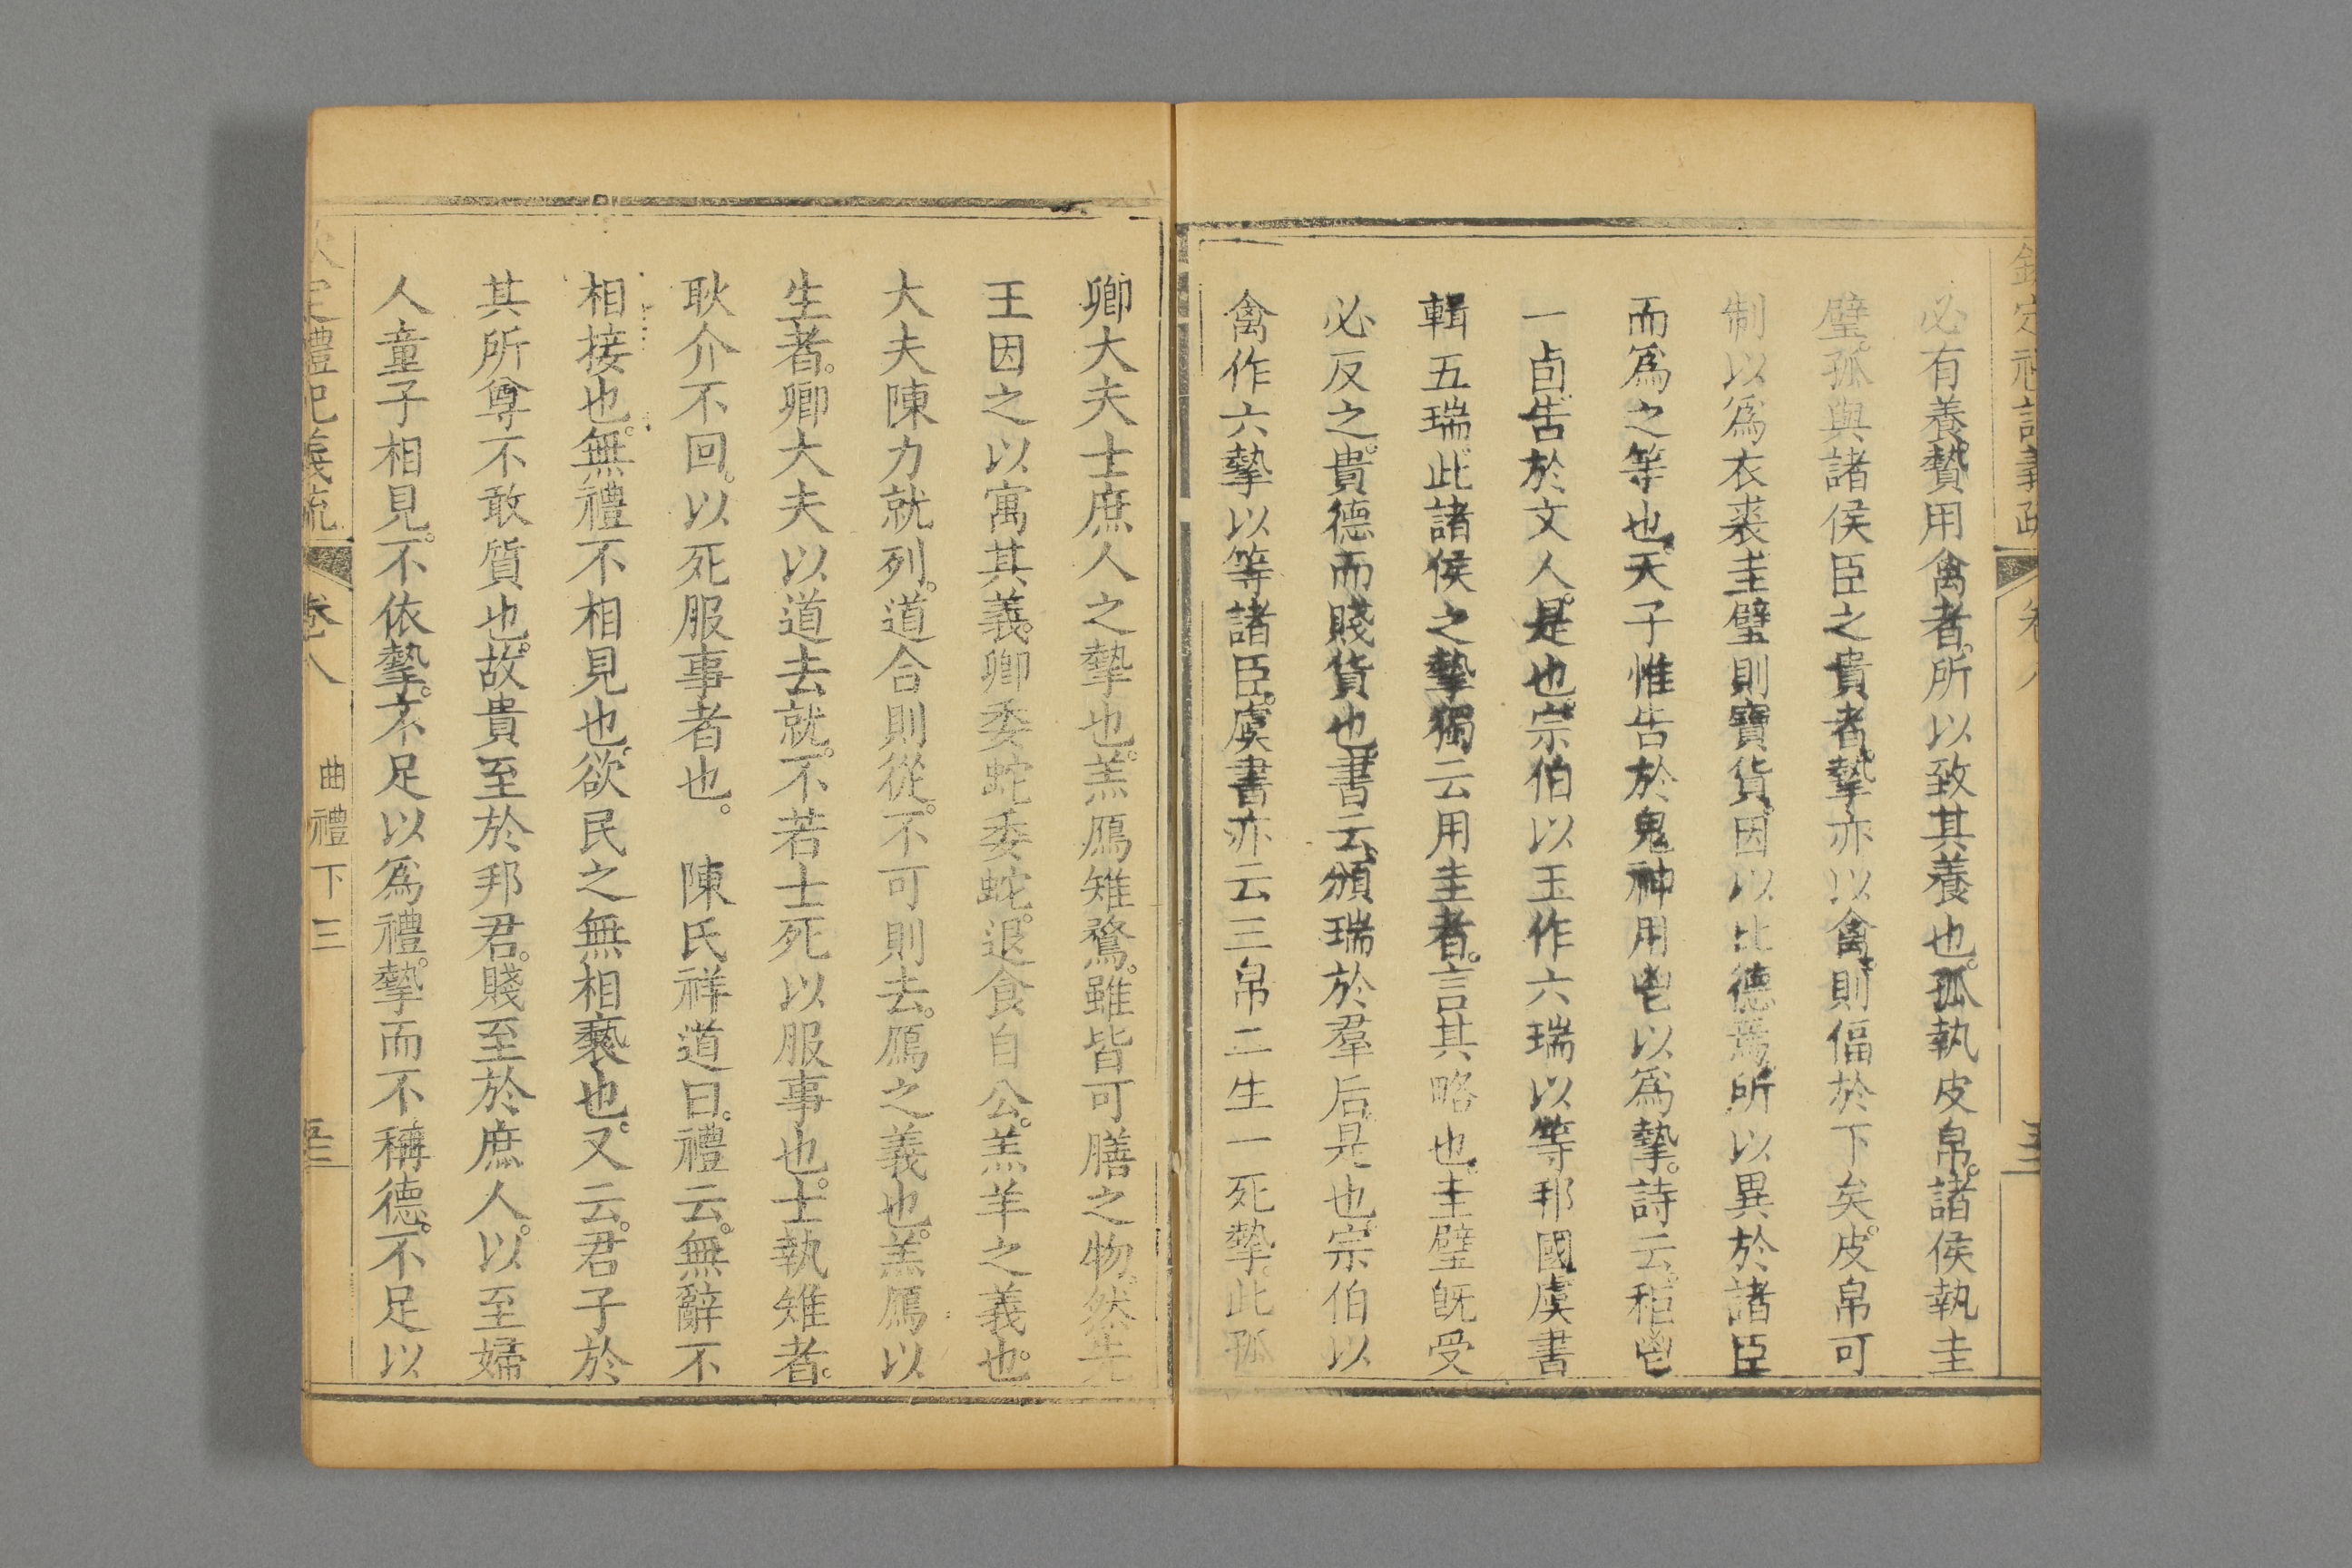 必有養贄用禽者。所以致其養也。孤執皮帛。諸侯執圭
璧。孤與諸侯臣之貴者。摯亦以禽。則偪於下矣。皮帛可
制以爲衣裘。圭璧則寶貨。因以比德焉。所以異於諸臣
而爲之等也。天子惟告於鬼神用鬯以爲摯。詩云。秬鬯
一卣。告於文人。是也。宗伯以玉作六瑞以等邦國。虞書
輯五瑞。此諸侯之摯獨云用圭者。言其略也。圭璧旣受
必反之。貴德而賤貨也。書云。頒瑞於羣后。是也。宗伯以
禽作六摯以等諸臣。虞書亦云三帛二生一死摯。此孤
卿大夫士庶人之摯也。羔鴈雉鶩。雖皆可膳之物。然先
王因之以寓其義。卿委蛇委蛇。退食自公。羔羊之義也。
大夫陳力就列。道合則從。不可則去。鴈之義也。羔鴈以
生者。卿大夫以道去就。不若士死以服事也。士執雉者。
耿介不回。以死服事者也。　陳氏祥道曰。禮云。無辭不
相接也。無禮不相見也。欲民之無相褻也。又云。君子於
其所尊不敢質也。故貴至於邦君。賤至於庶人。以至婦
人童子相見。不依摯。不足以爲禮。摯而不稱德。不足以
定禮記義疏　卷八　曲禮下三